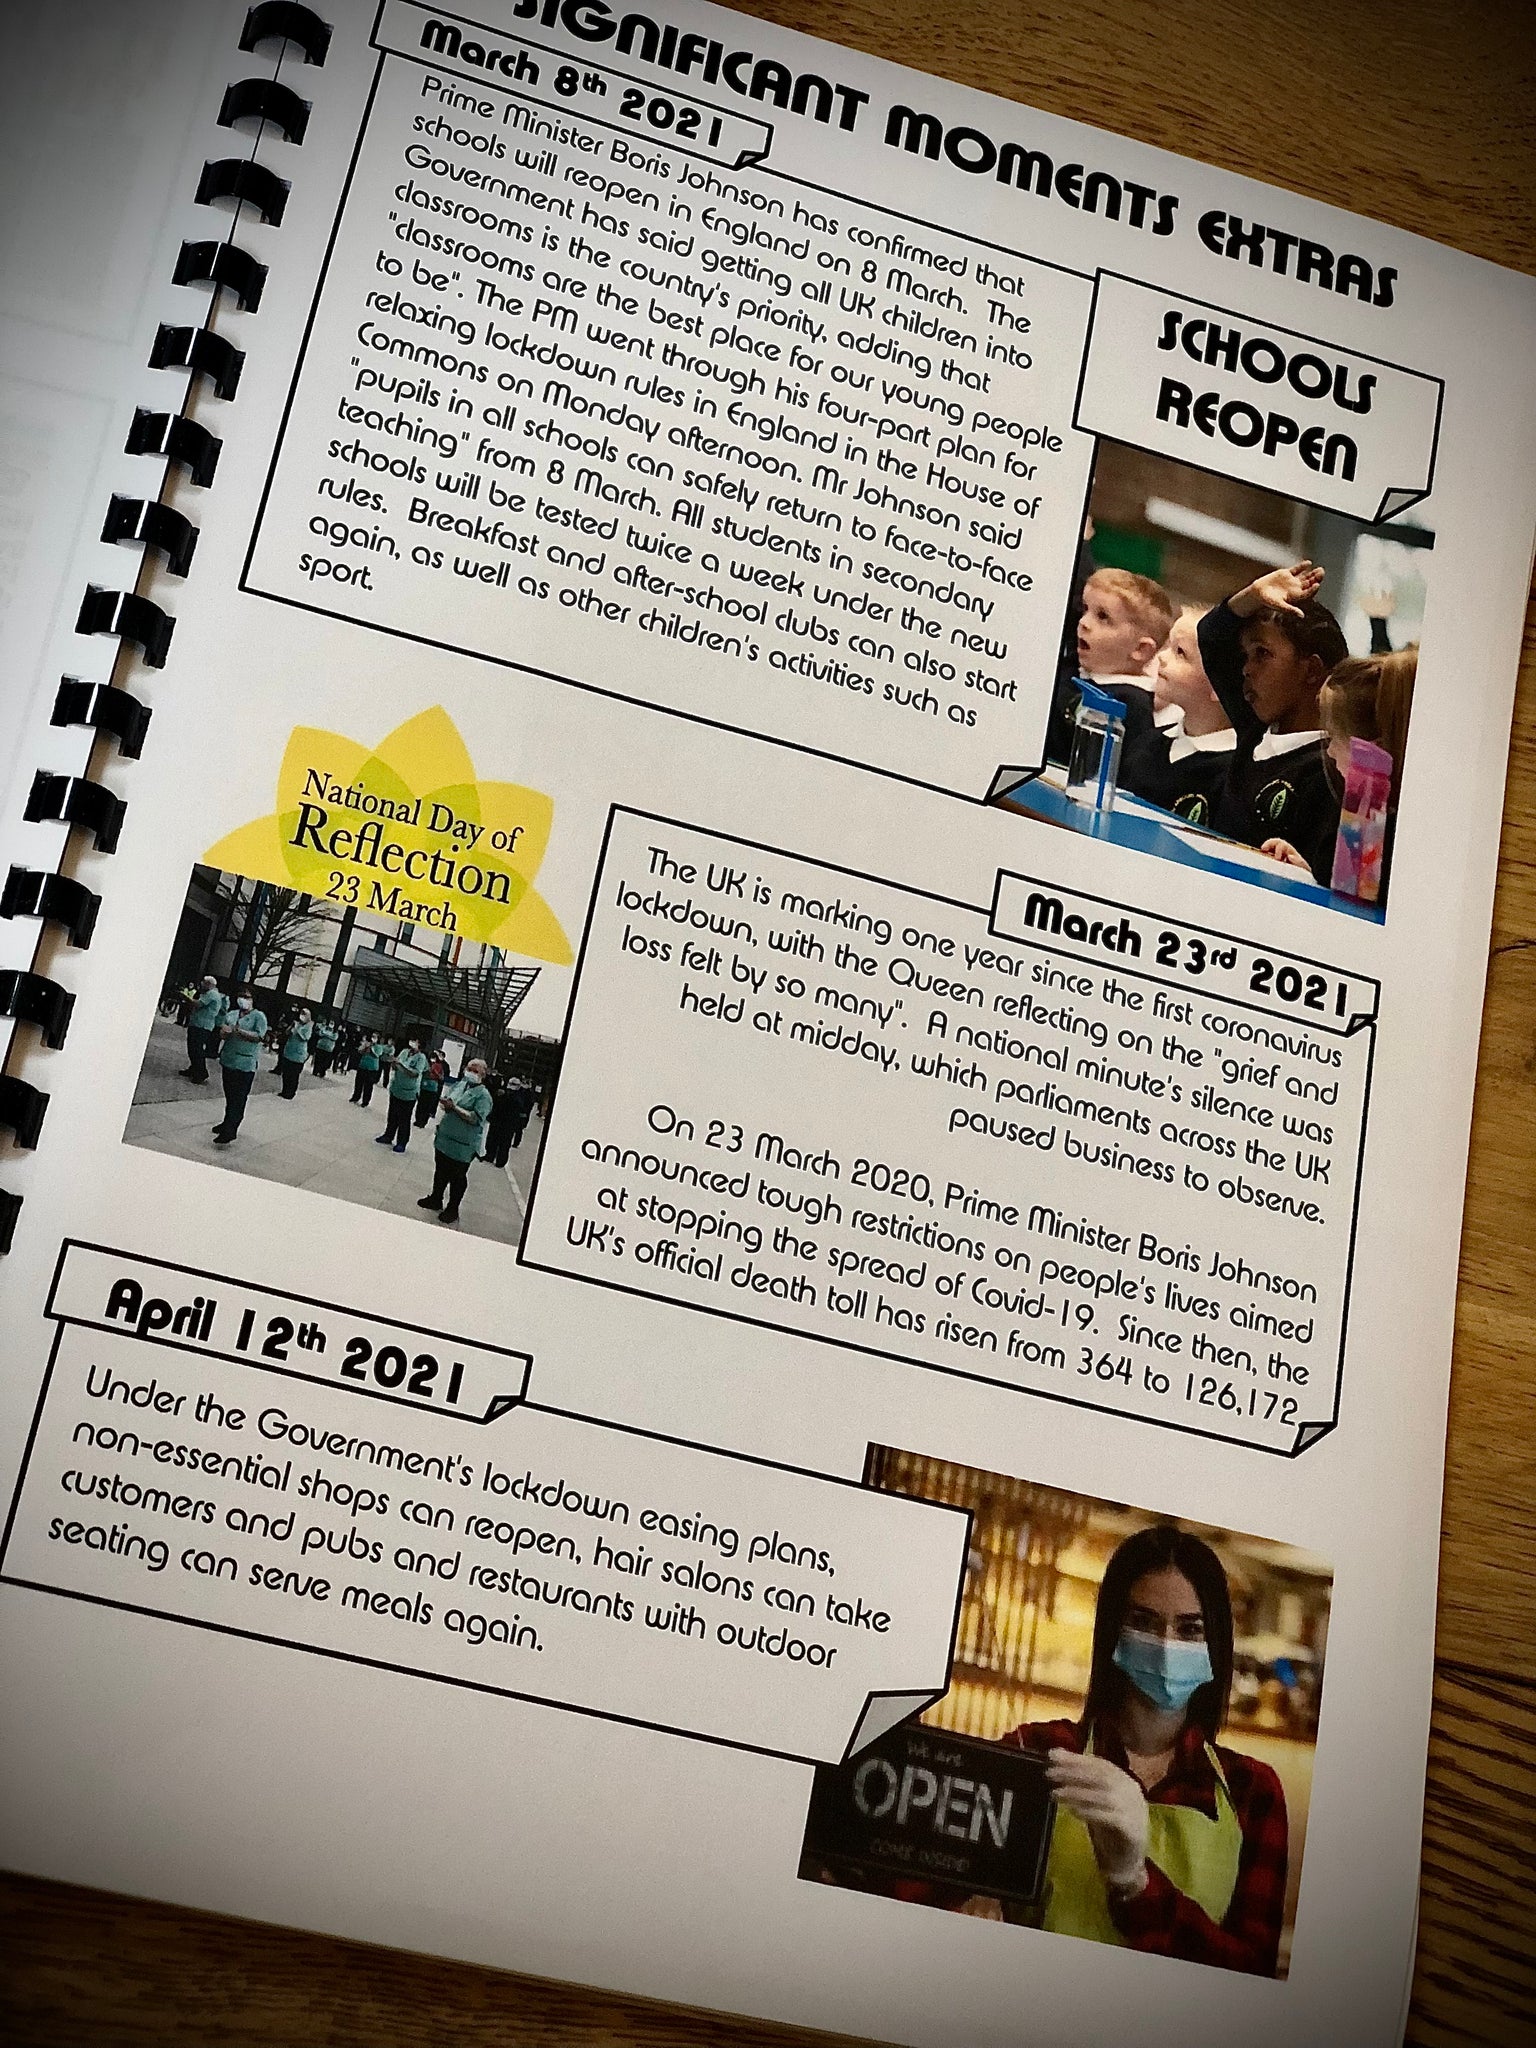 SIGNIFICANT MOMENTS EXTRAS
March 8th 2021
Prime Minister Boris Johnson has confirmed that
schools will reopen in England on 8 March. The
Government has said getting all UK children into
classrooms is the country's priority, adding that
"classrooms are the best place for our young people
to be". The PM went through his four-part plan for
relaxing lockdown rules in England in the House of
Commons on Monday afternoon. Mr Johnson said
"pupils in all schools can safely return to face-to-face
teaching" from 8 March. All students in secondary
schools will be tested twice a week under the new
rules. Breakfast and after-school clubs can also start
again, as well as other children's activities such as
sport.
SCHOOLS
REOPEN
National Day of
Reflection
23 March
March 23rd 2021
The UK is marking one year since the first coronavirus
lockdown, with the Queen reflecting on the "grief and
loss felt by so many". A national minute's silence was
held at midday, which parliaments across the UK
paused business to observe.
On 23 March 2020, Prime Minister Boris Johnson
announced tough restrictions on people's lives aimed
at stopping the spread of Covid-19. Since then, the
UK's official death toll has risen from 364 to 126,172
April 12th 2021
Under the Government's lockdown easing plans,
non-essential shops can reopen, hair salons can take
customers and pubs and restaurants with outdoor
seating can serve meals again.
We are
OPEN
COME INSIDE